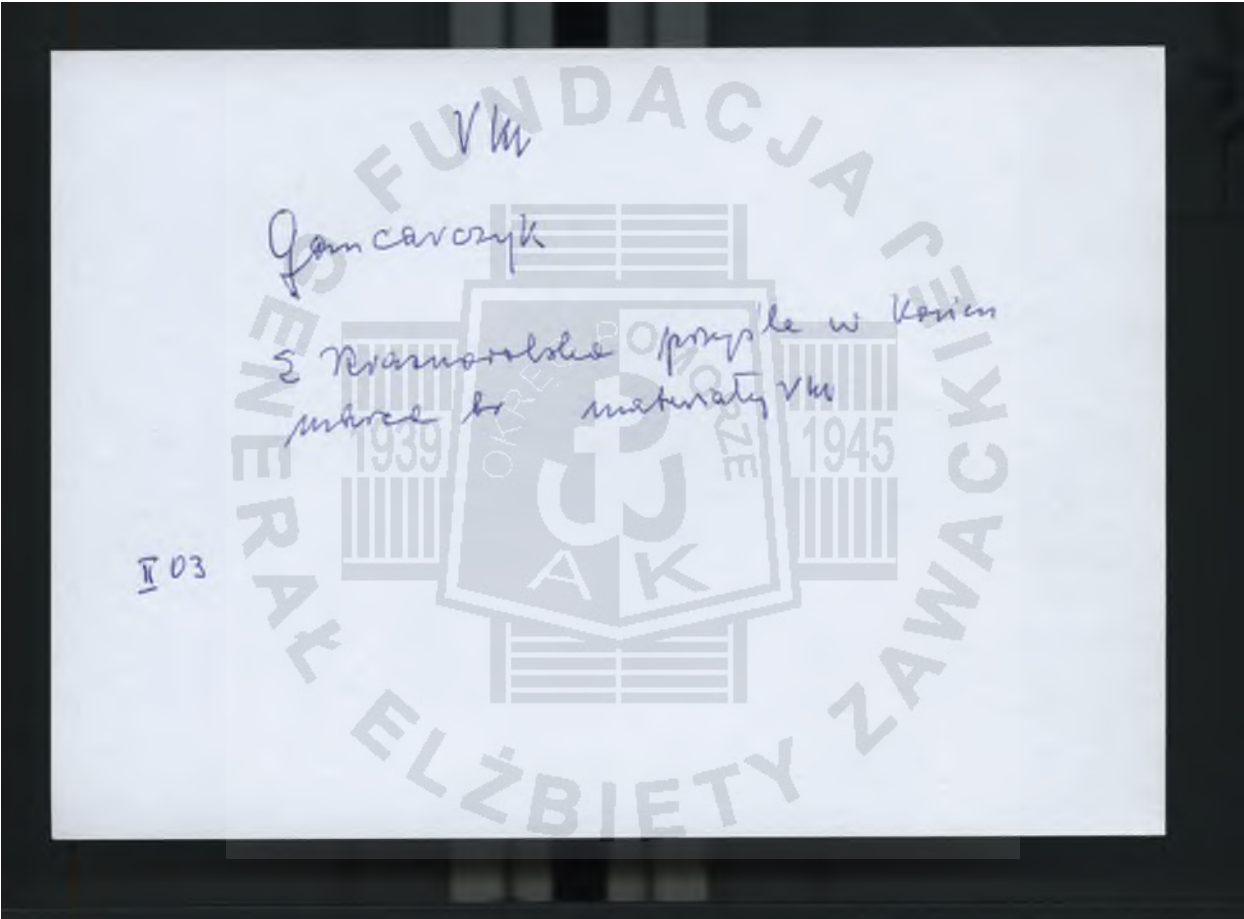 VM
Gancarczyk
E przyśle w Koniec
marca br materiały VM
II 03
FUNDACJA
GENERAŁ ELŻBIETY ZAWACKIEJ
OKRĘG POMORZE
1939
1945
AK